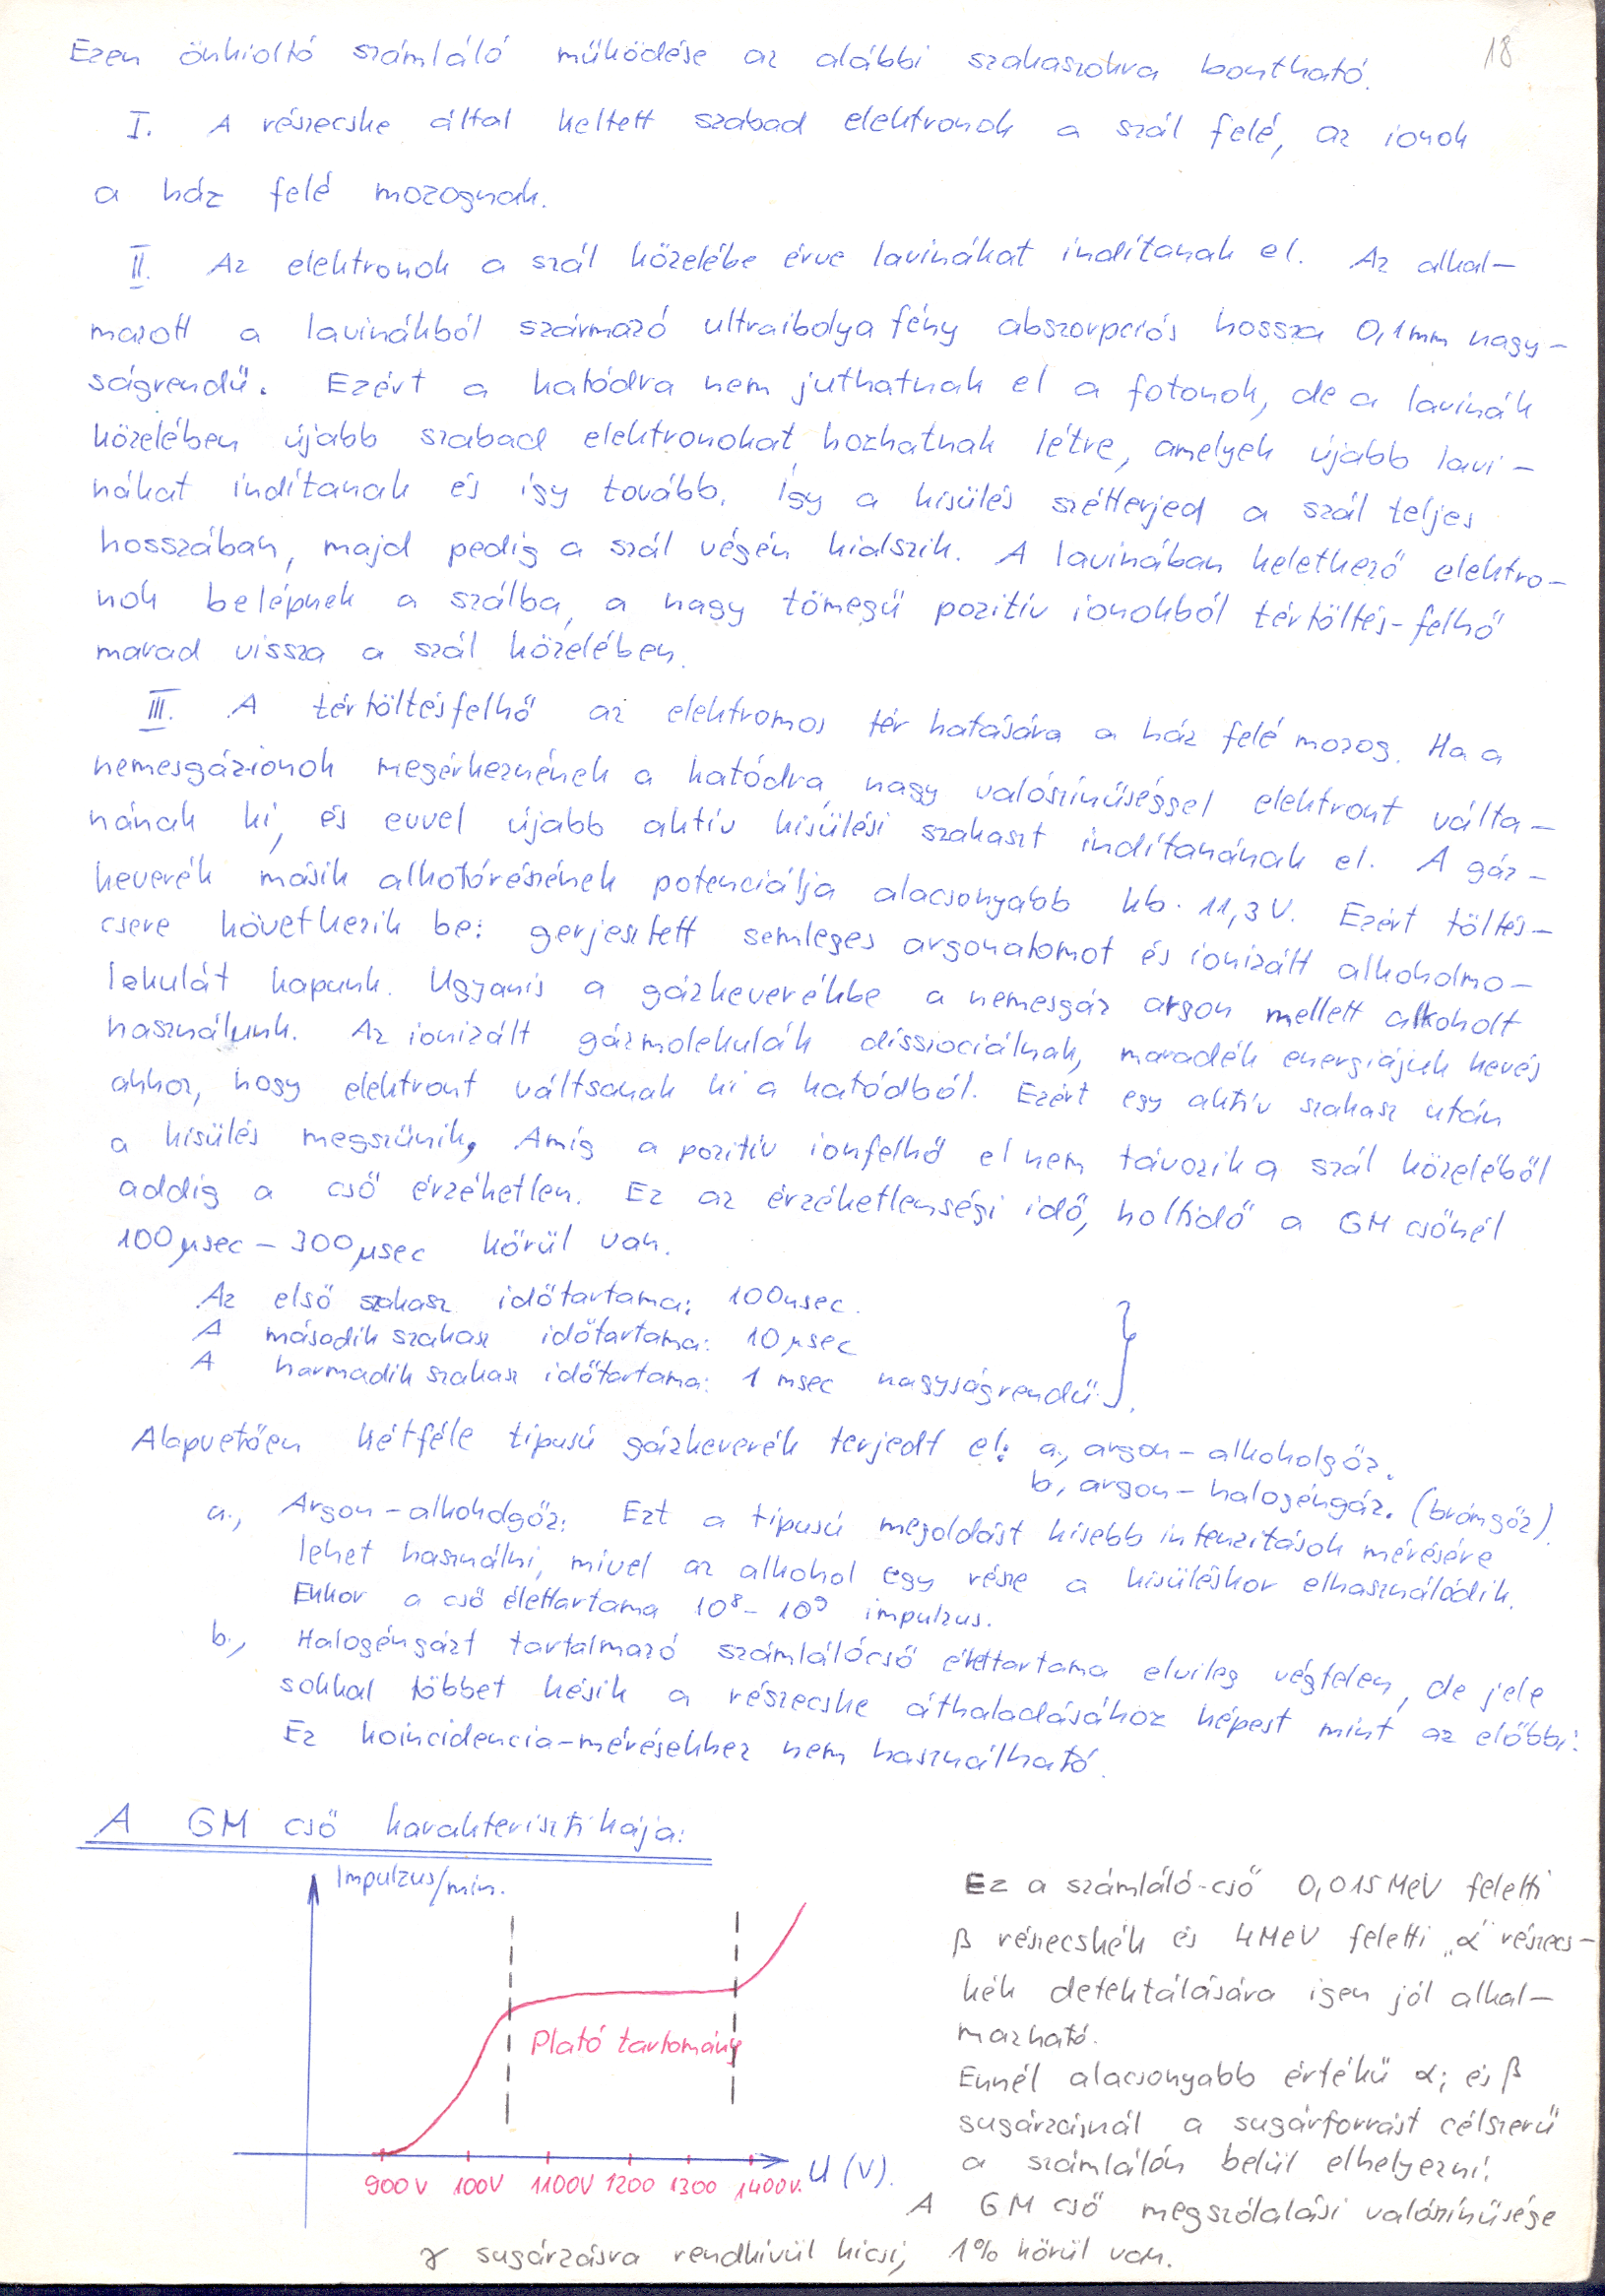 18
Ezen önkioltó számláló működése az alábbi szakaszokra bontható.
I. A részecske által keltett szabad elektronok a szál felé, az ionok
a ház felé mozognak.
II. Az elektronok a szál közelébe érve lavinákat indítanak el. Az alkal-
mazott a lavinákból származó ultraibolya fény abszorpciós hossza 0,1mm nagy-
ságrendű. Ezért a katódra nem juthatnak el a fotonok, de a lavinák
közelében újabb szabad elektronokat hozhatnak létre, amelyek újabb lavi-
nákat indítanak és így tovább. Így a kisülés szétterjed a szál teljes
hosszában, majd pedig a szál végén kialszik. A lavinában keletkező elektro-
nok belépnek a szálba, a nagy tömegű pozitív ionokból tértöltés-felhő
marad vissza a szál közelében.
III. A tértöltésfelhő az elektromos tér hatására a ház felé mozog. Ha a
nemesgázionok megérkeznének a katódra nagy valószínűséggel elektront válta-
nának ki, és evvel újabb aktív kisülési szakaszt indítanának el. A gáz-
keverék másik alkotórészének potenciálja alacsonyabb kb. 11,3 V. Ezért töltés-
csere következik be: gerjesztett semleges argonatomot és ionizált alkoholmo-
lekulát kapunk. Ugyanis a gázkeverékbe a nemesgáz argon mellett alkoholt
használunk. Az ionizált gázmolekulák disszociálnak, maradék energiájuk kevés
ahhoz, hogy elektront váltsanak ki a katódból. Ezért egy aktív szakasz után
a kisülés megszűnik, Amíg a pozitív ionfelhő el nem távozik a szál közeléből
addig a cső érzéketlen. Ez az érzéketlenségi idő, holtidő a GM csőnél
100 μsec - 300 μsec körül van.
Az első szakasz időtartama: 100nsec.
A második szakasz időtartama: 10 μsec
A harmadik szakasz időtartama: 1 msec nagyságrendű.
Alapvetően kétféle típusú gázkeverék terjedt el: a., argon-alkoholgőz.
b., argon-halogéngáz. (brómgőz).
a., Argon-alkoholgőz: Ezt a típusú megoldást kisebb intenzitások mérésére
lehet használni, mivel az alkohol egy része a kisüléskor elhasználódik.
Ekkor a cső élettartama 10⁸-10⁹ impulzus.
b., Halogéngázt tartalmazó számlálócső élettartama elvileg végtelen, de jele
sokkal többet késik a részecske áthaladásához képest mint az előbbi.
Ez koincidencia-mérésekhez nem használható.
A GM cső karakterisztikája:
Impulzus/min.
Plató tartomány
900V 100V 1100V 1200 1300 1400V. U (V).
Ez a számláló-cső 0,015 MeV feletti
β részecskék és 4 MeV feletti „α" részecs-
kék detektálására igen jól alkal-
mazható.
Ennél alacsonyabb értékű α; és β
sugárzásnál a sugárforrást célszerű
a számlálón belül elhelyezni.
A GM cső megszólalási valószínűsége
γ sugárzásra rendkívül kicsi, 1% körül van.